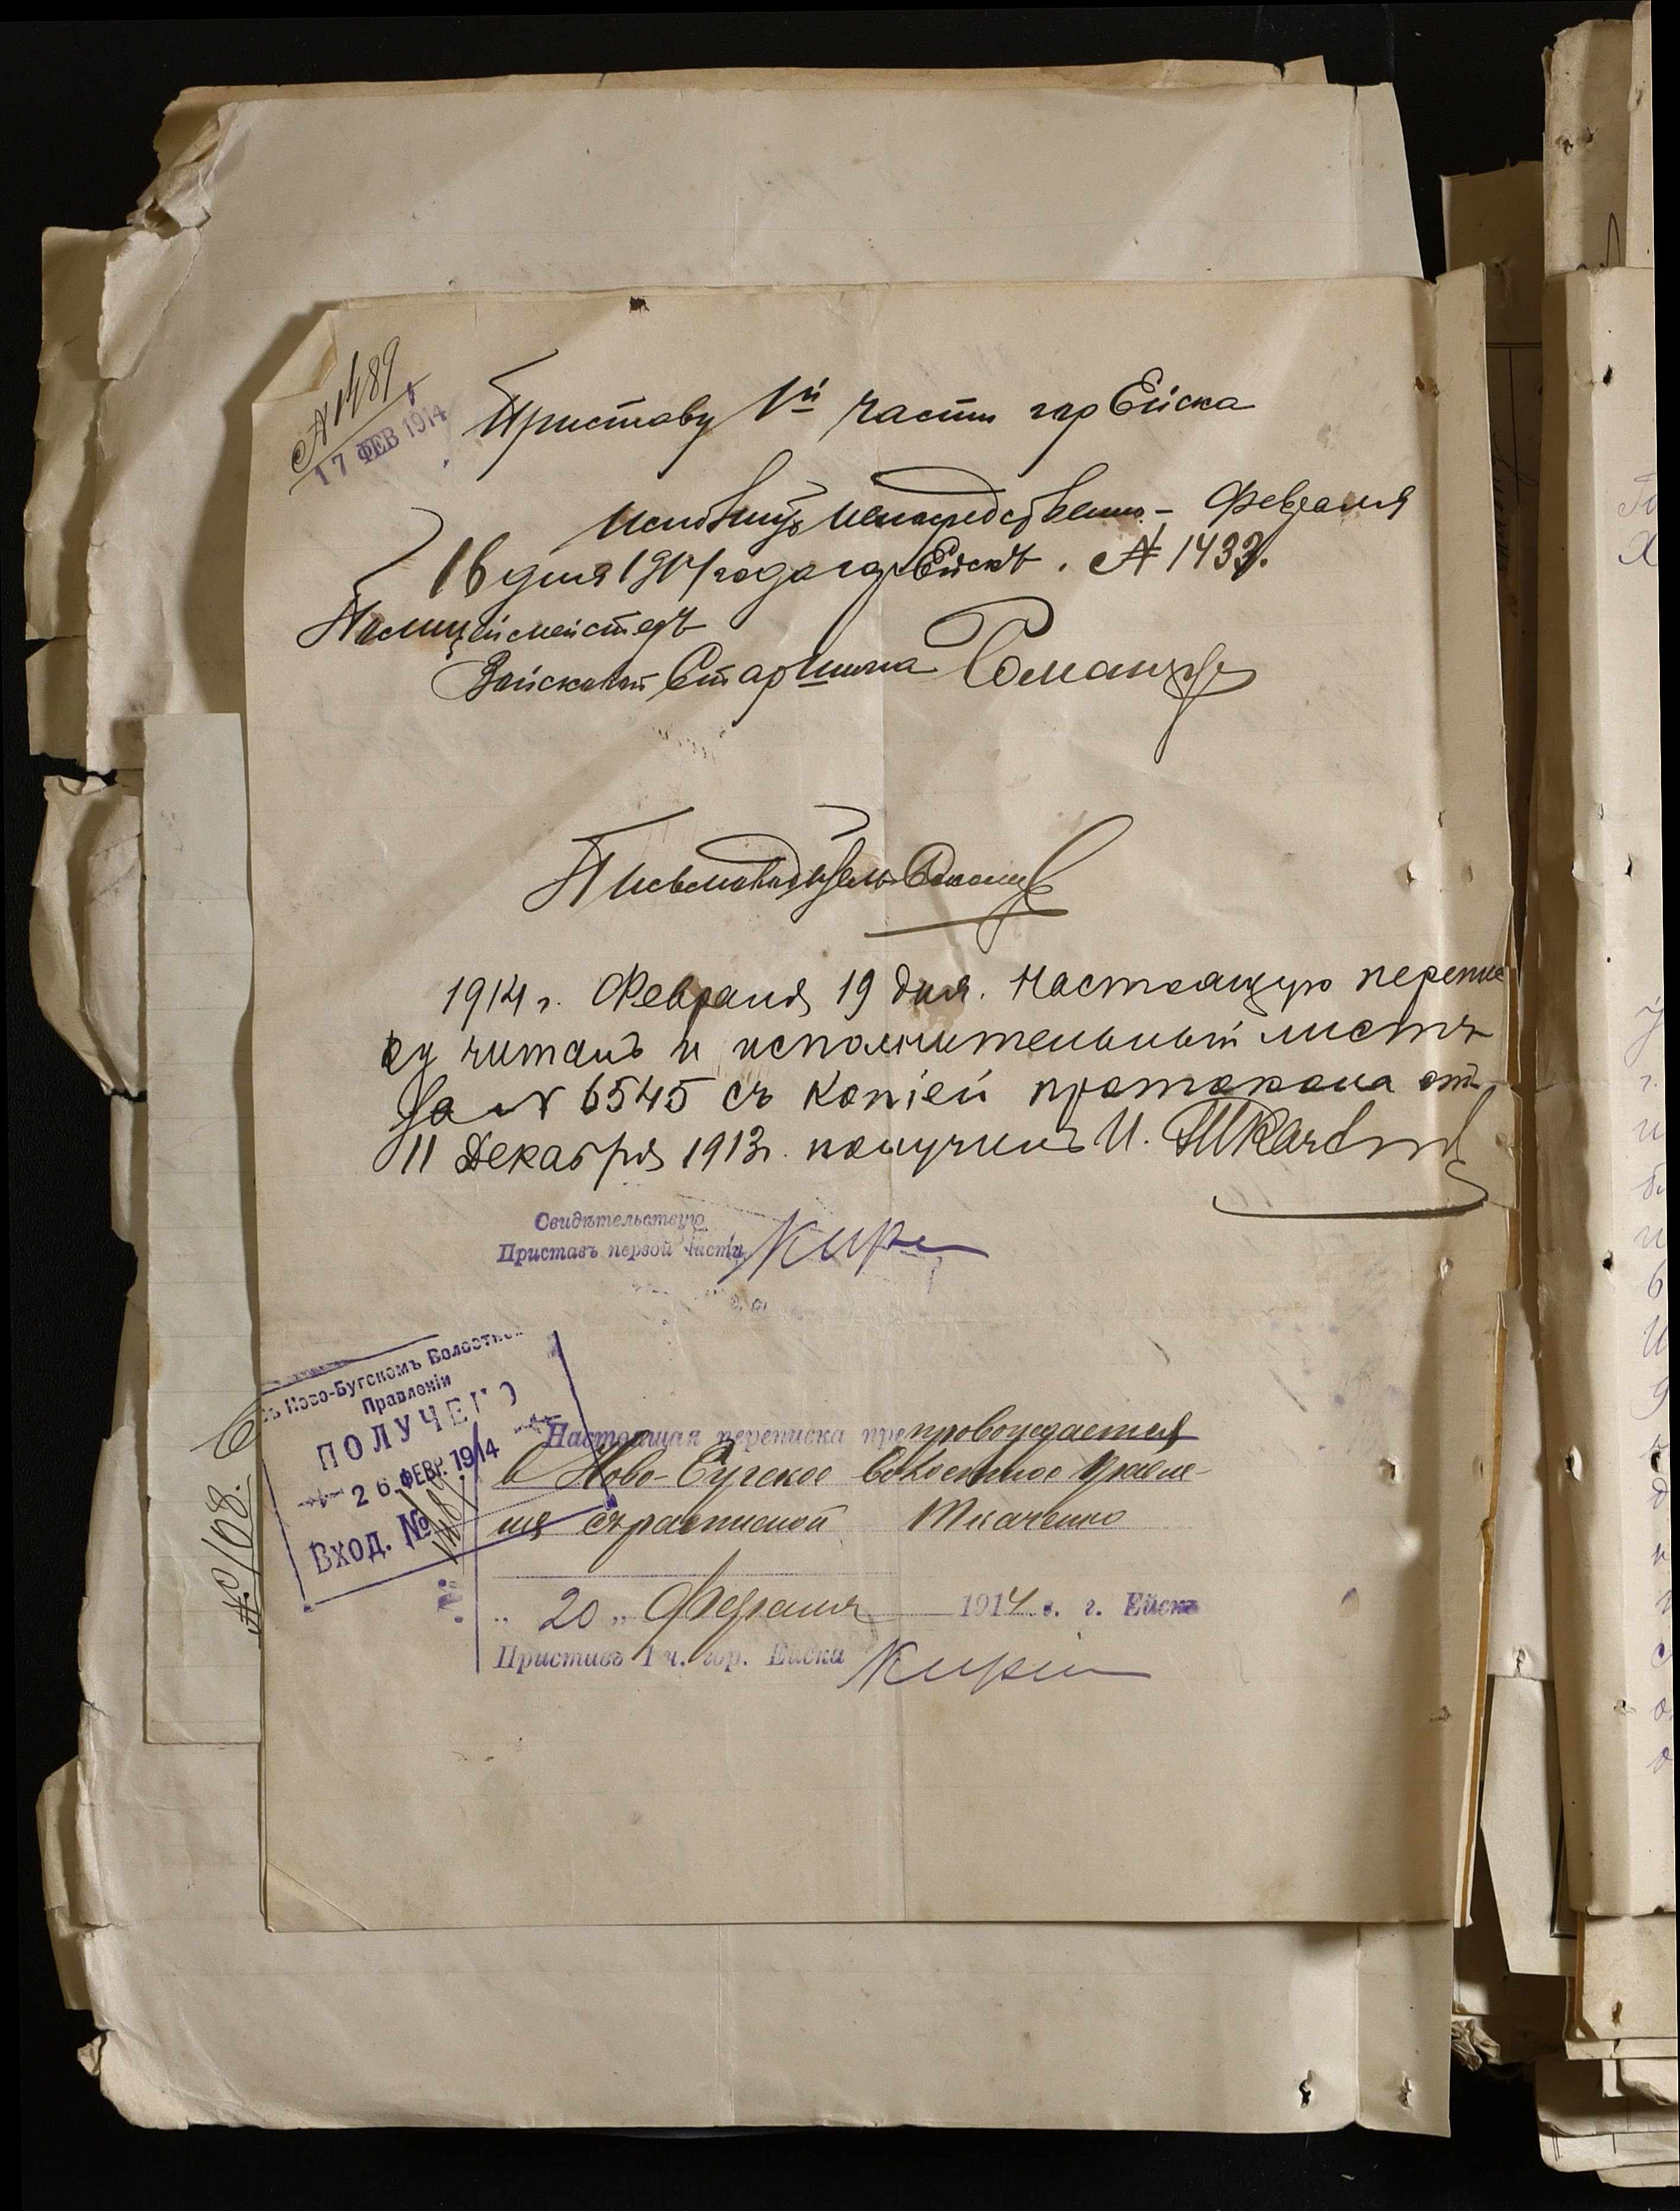 № 1489
17 ФЕВ 1914
Приставу 1й части гор Ейска
Исполнить непосредственно. – Февраля
16 дня 1914 года гор Ейскъ. № 1433.
Полиціймейстеръ
Войсковой Старшина
Письмоводитель
1914 г. Февраля 19 дня. Настоящую перепис
ку читалъ и исполнительный листъ
за № 6545 съ копіей протокола отъ
11 Декабря 1913 г. получилъ И. Ткаченко
Свидѣтельствую
Приставъ первой части
въ Ново-Бугскомъ Волостном
Правленіи
ПОЛУЧЕНО
26 ФЕВР. 1914
Вход. №
Настоящая переписка препровождается
в Ново-Бугское Волостное Правле-
ніе съ распиской Ткаченко
„ 20 „ Февраля 1914 г. г. Ейскъ
Приставъ 1 ч. гор. Ейска